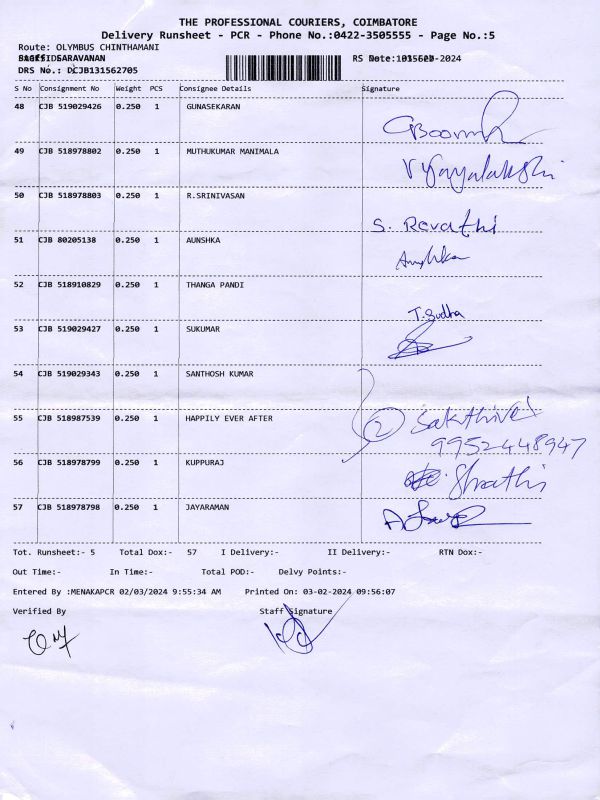 THE PROFESSIONAL COURIERS, COIMBATORE
Delivery Runsheet - PCR - Phone No.:0422-3505555 - Page No.:5
Route: OLYMBUS CHINTHAMANI
SARAVANAN
RS -2024
DRS No.: DCJB131562705
S No Consignment No Weight PCS Consignee Details Signature
48 CJB 519029426 0.250 1 GUNASEKARAN
49 CJB 518978802 0.250 1 MUTHUKUMAR MANIMALA Vijayalakshi
50 CJB 518978803 0.250 1 R.SRINIVASAN S. Revathi
51 CJB 80205138 0.250 1 AUNSHKA Anushka
52 CJB 518910829 0.250 1 THANGA PANDI T. Sudha
53 CJB 519029427 0.250 1 SUKUMAR
54 CJB 519029343 0.250 1 SANTHOSH KUMAR
55 CJB 518987539 0.250 1 HAPPILY EVER AFTER 2 Sakthivel
9952448947
56 CJB 518978799 0.250 1 KUPPURAJ
57 CJB 518978798 0.250 1 JAYARAMAN
Tot. Runsheet:- 5 Total Dox:- 57 I Delivery:- II Delivery:- RTN Dox:-
Out Time:- In Time:- Total POD:- Delvy Points:-
Entered By :MENAKAPCR 02/03/2024 9:55:34 AM Printed On: 03-02-2024 09:56:07
Verified By Staff Signature